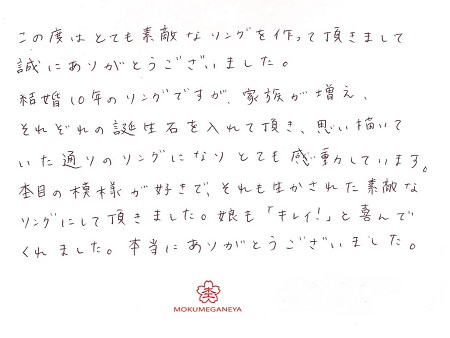 この度はとても素敵なリングを作って頂きまして
誠にありがとうございました。
結婚10年のリングですが、家族が増え、
それぞれの誕生石を入れて頂き、思い描いて
いた通りのリングになりとても感動しています。
杢目の模様が好きで、それも生かされた素敵な
リングにして頂きました。娘も「キレイ!」と喜んで
くれました。本当にありがとうございました。
杢
MOKUMEGANEYA